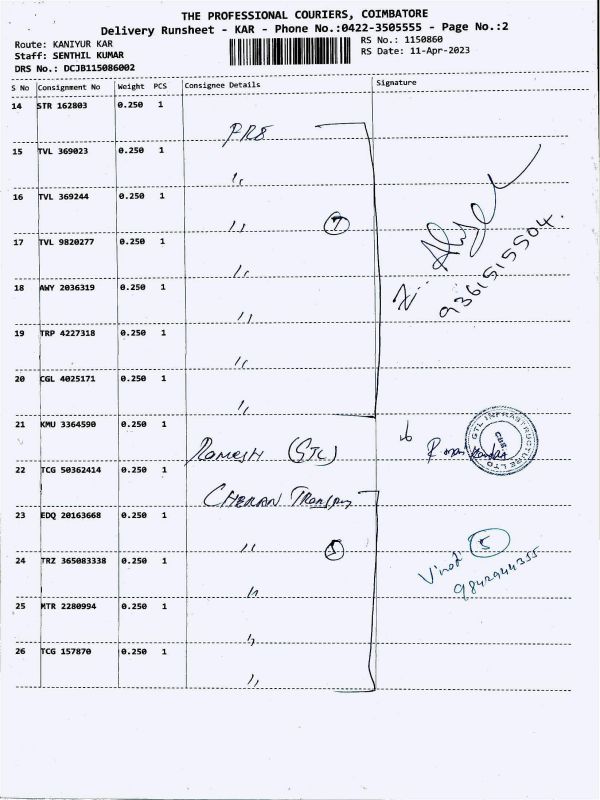 THE PROFESSIONAL COURIERS, COIMBATORE
Delivery Runsheet - KAR - Phone No.:0422-3505555 - Page No.:2
Route: KANIYUR KAR
Staff: SENTHIL KUMAR
DRS No.: DCJB115086002
RS No.: 1150860
RS Date: 11-Apr-2023
S No Consignment No Weight PCS Consignee Details Signature
14 STR 162803 0.250 1
15 TVL 369023 0.250 1 ,,
16 TVL 369244 0.250 1 ,, 7
17 TVL 9820277 0.250 1 ,,
18 AWY 2036319 0.250 1 ,,
9361515504.
19 TRP 4227318 0.250 1 ,,
20 CGL 4025171 0.250 1 ,,
21 KMU 3364590 0.250 1 Ramesh (GTL)
GTL INFRASTRUCTURE LTD
22 TCG 50362414 0.250 1 Cheran
23 EDQ 20163668 0.250 1 ,, 5
24 TRZ 365083338 0.250 1 ,,
5
9842944355
25 MTR 2280994 0.250 1 ,,
26 TCG 157870 0.250 1 ,,